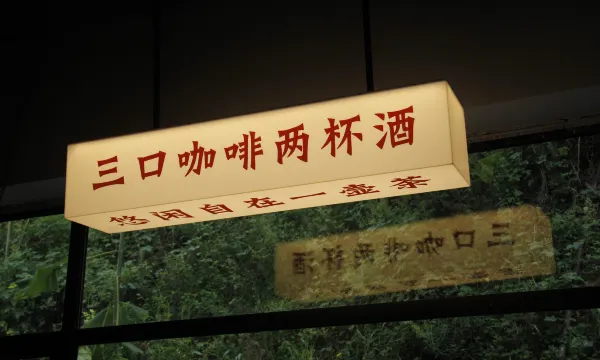 三口咖啡两杯酒
悠闲自在一壶茶
三口咖啡两杯酒